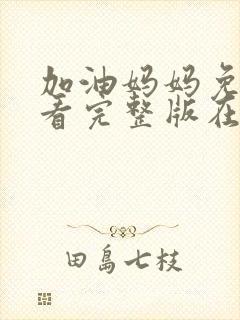 加油妈妈免
看完整版在
田島七枝